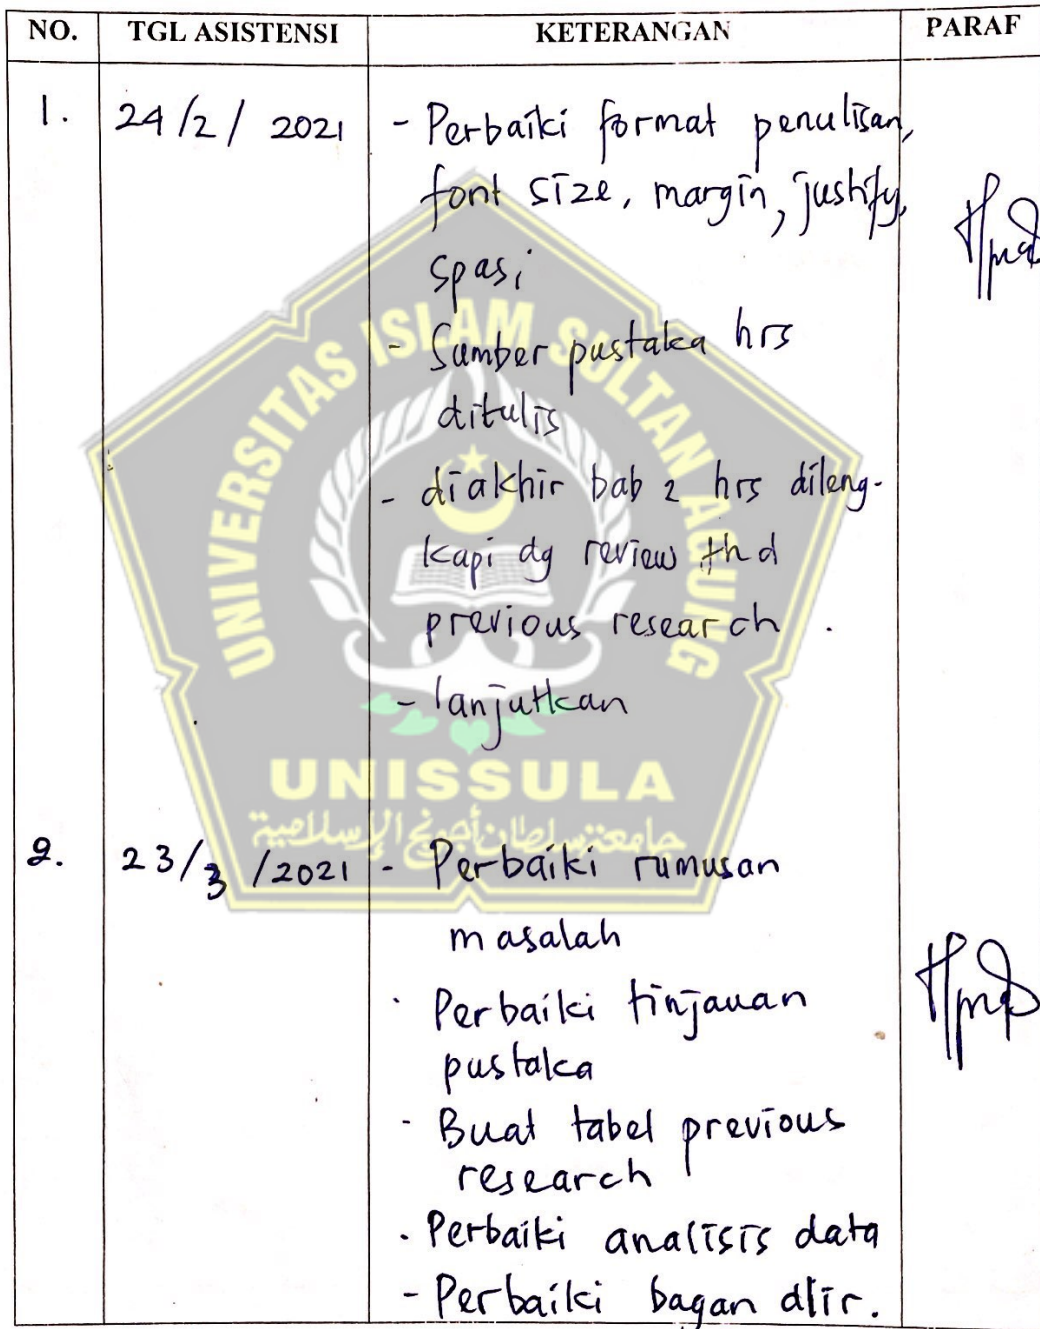 NO. TGL ASISTENSI KETERANGAN PARAF
1. 24/2/ 2021 - Perbaiki format penulisan,
font size, margin, justify,
spasi
- Sumber pustaka hrs
ditulis
- diakhir bab 2 hrs dileng-
kapi dg review thd
previous research .
- lanjutkan
2. 23/3 /2021 - Perbaiki rumusan
masalah
- Perbaiki tinjauan
pustaka
- Buat tabel previous
research
- Perbaiki analisis data
- Perbaiki bagan alir.
UNIVERSITAS ISLAM SULTAN AGUNG
UNISSULA
جامعة سلطان أجونج الإسلامية